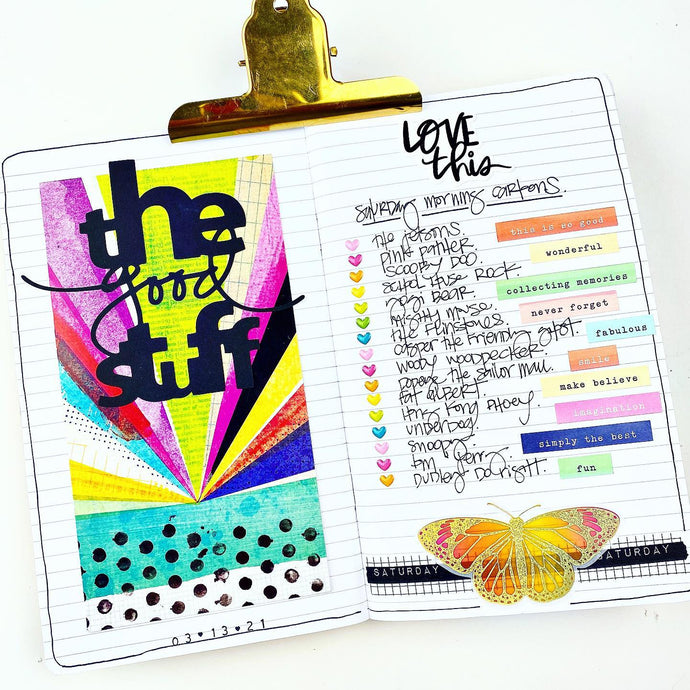 the
good
stuff
03♥13♥21
LOVE
this
saturday morning cartoons.
the jetsons.
pink panther.
scooby doo.
school house rock.
yogi bear.
mighty mouse.
the flintstones.
casper the friendly ghost.
woody woodpecker.
popeye the sailor man.
fat albert.
hong kong phooey.
underdog.
snoopy.
tom jerry.
dudley do right.
this is so good
wonderful
collecting memories
never forget
fabulous
smile
make believe
imagination
simply the best
fun
SATURDAY
SATURDAY